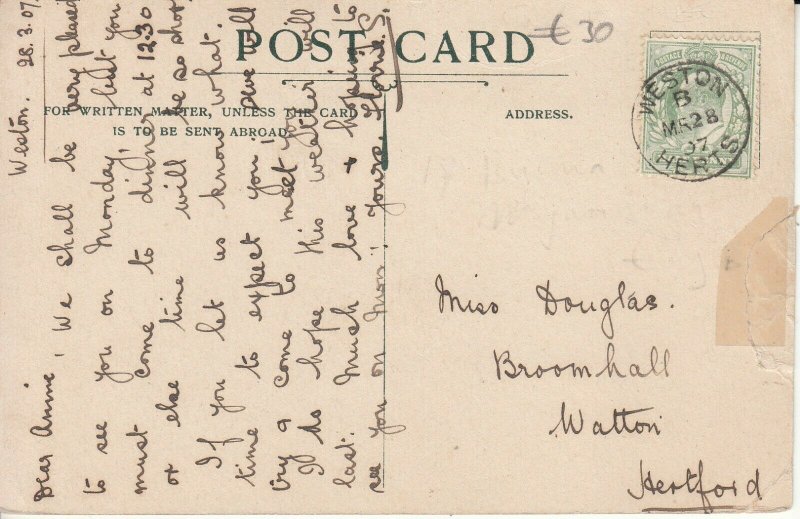 POST CARD
€ 30
FOR WRITTEN MATTER, UNLESS THE CARD
IS TO BE SENT ABROAD.
ADDRESS.
WESTON
B
MR 28
07
HERTS
Weston. 28.3.07.
Dear Annie, We shall be very pleased
to see you on Monday, but you
must come to dinner at 12.30
or else time will be so short.
If you let us know what
time to expect you, I will
try & come to meet you.
I do hope this weather will
last. Much love & hoping to
see you on Mon: Yours,
Miss Douglas.
Broomhall
Watton
Hertford